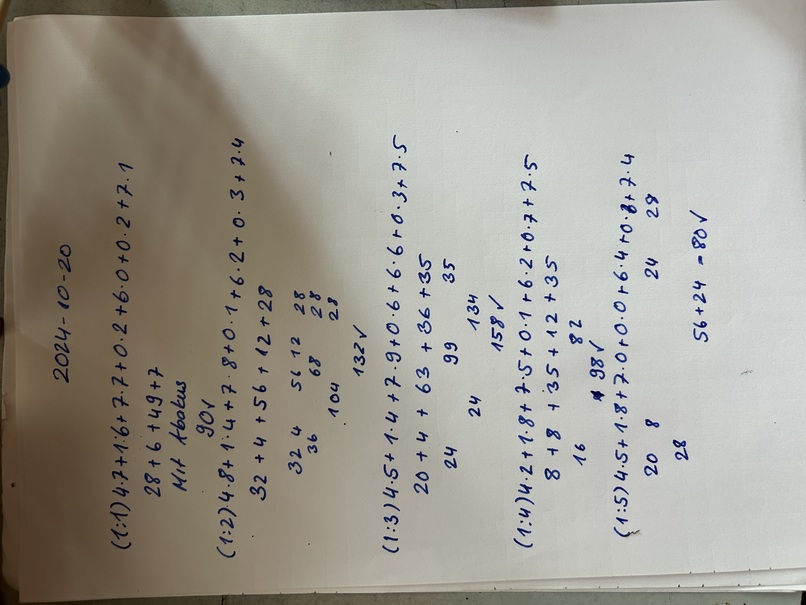 2024-10-20
(1:1) 4·7+1·6+7·7+0·2+6·0+0·2+7·1
28+6+49+7
Mit Abakus
90✓
(1:2) 4·8+1·4+7·8+0·1+6·2+0·3+7·4
32+4+56+12+28
32 4 56 12 28
36 68 28
104 28
132✓
(1:3) 4·5+1·4+7·9+0·6+6·6+0·3+7·5
20+4+63+36+35
24 99 35
24 134
158✓
(1:4) 4·2+1·8+7·5+0·1+6·2+0·7+7·5
8+8+35+12+35
16 82
98✓
(1:5) 4·5+1·8+7·0+0·0+6·4+0·8+7·4
20 8 24 28
28
56+24=80✓